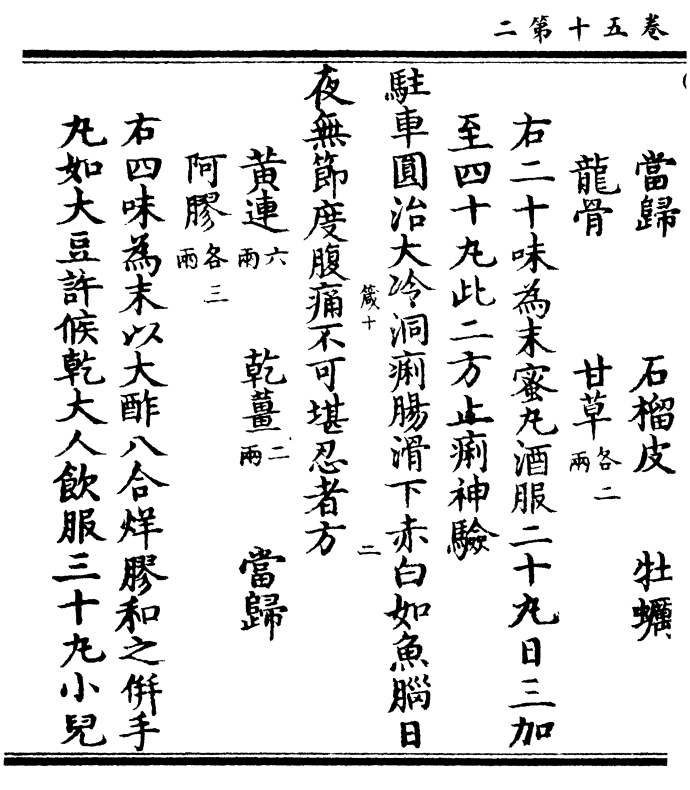 卷五十第二
當歸　石榴皮　牡蠣
龍骨　甘草各二兩
右二十味為末蜜丸酒服二十丸日三加
至四十丸此二方止痢神驗
駐車圓治大冷洞痢腸滑下赤白如魚腦日
夜無節度腹痛不可堪忍者方
黃連六兩　乾薑二兩　當歸
阿膠各三兩
右四味為末以大酢八合烊膠和之併手
丸如大豆許候乾大人飲服三十丸小兒
箴十
二